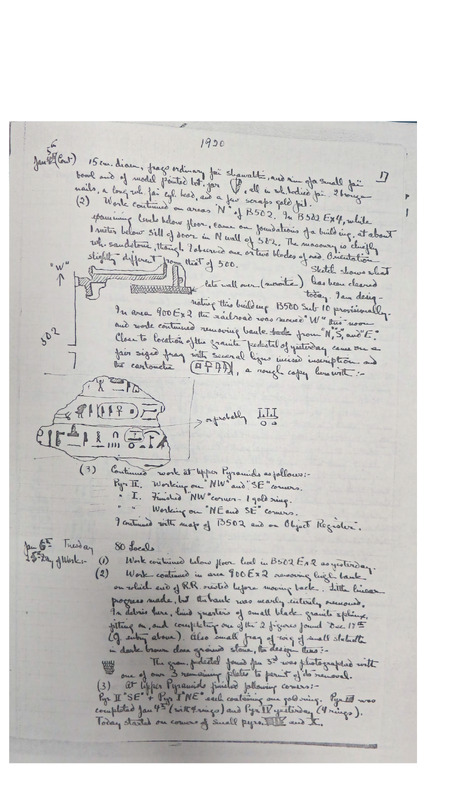 1920
17
Jan 5th (Cont) 15 cm. diam., frags ordinary fai shawabtis, and rim of a small fai
bowl and of model pointed bot. jar, all in wh. bodied fai. 2 bronze
nails, a long wh. fai cyl. bead, and a few scraps gold foil.
(2) Work continued on areas "N" of B502. In B502 Ex4, while
examining levels below floor, came on foundations of a building, at about
1 meter below sill of door in N wall of 502. The masonry is chiefly
wh. sandstone, though 1 observed one or two blocks of red. Orientation
slightly different from that of 500.
Sketch shows what
late wall over (masonry) has been cleared
today. I am desig-
nating this building B500 Sub 10 provisionally.
"W"
502
In area 900 Ex2 the railroad was moved "W" this noon
and work continued removing bank from "N", "S", and "E".
Close to location of the granite pedestal of yesterday came on a
fair sized frag with several lines incised inscription and
the cartouche, a rough copy herewith:-
or probably
(3) Continued work at upper Pyramids as follows:-
Pyr II. Working on "NW" and "SE" corners.
" I. Finished "NW" corner - 1 gold ring.
" " Working on "NE and SE" corners.
I continued with map of B502 and on Object Register.
Jan 6th Tuesday 80 Locals.
25th Day of Work:- (1) Work continued below floor level in B502 Ex2 as yesterday.
(2) Work continued in area 900 Ex2 removing high bank
on which end of RR rested before moving back. Little linear
progress made, but the bank was nearly entirely removed.
In debris here, hind quarters of small black granite sphinx,
fitting on, and completing one of the 2 figures found Dec 17th
(Cf entry above). Also small frag of wig of small statuette
in dark brown close grained stone, the design thus:-
The gran. pedestal found Jan 3rd was photographed with
one of our 3 remaining plates to permit of its removal.
(3) At Upper Pyramids finished following corners:-
Pyr II "SE" + Pyr I "NE" each containing one gold ring. Pyr III was
completed Jan 4th (with 4 rings) and Pyr IV yesterday (4 rings).
Today started on corners of small pyrs. and X.